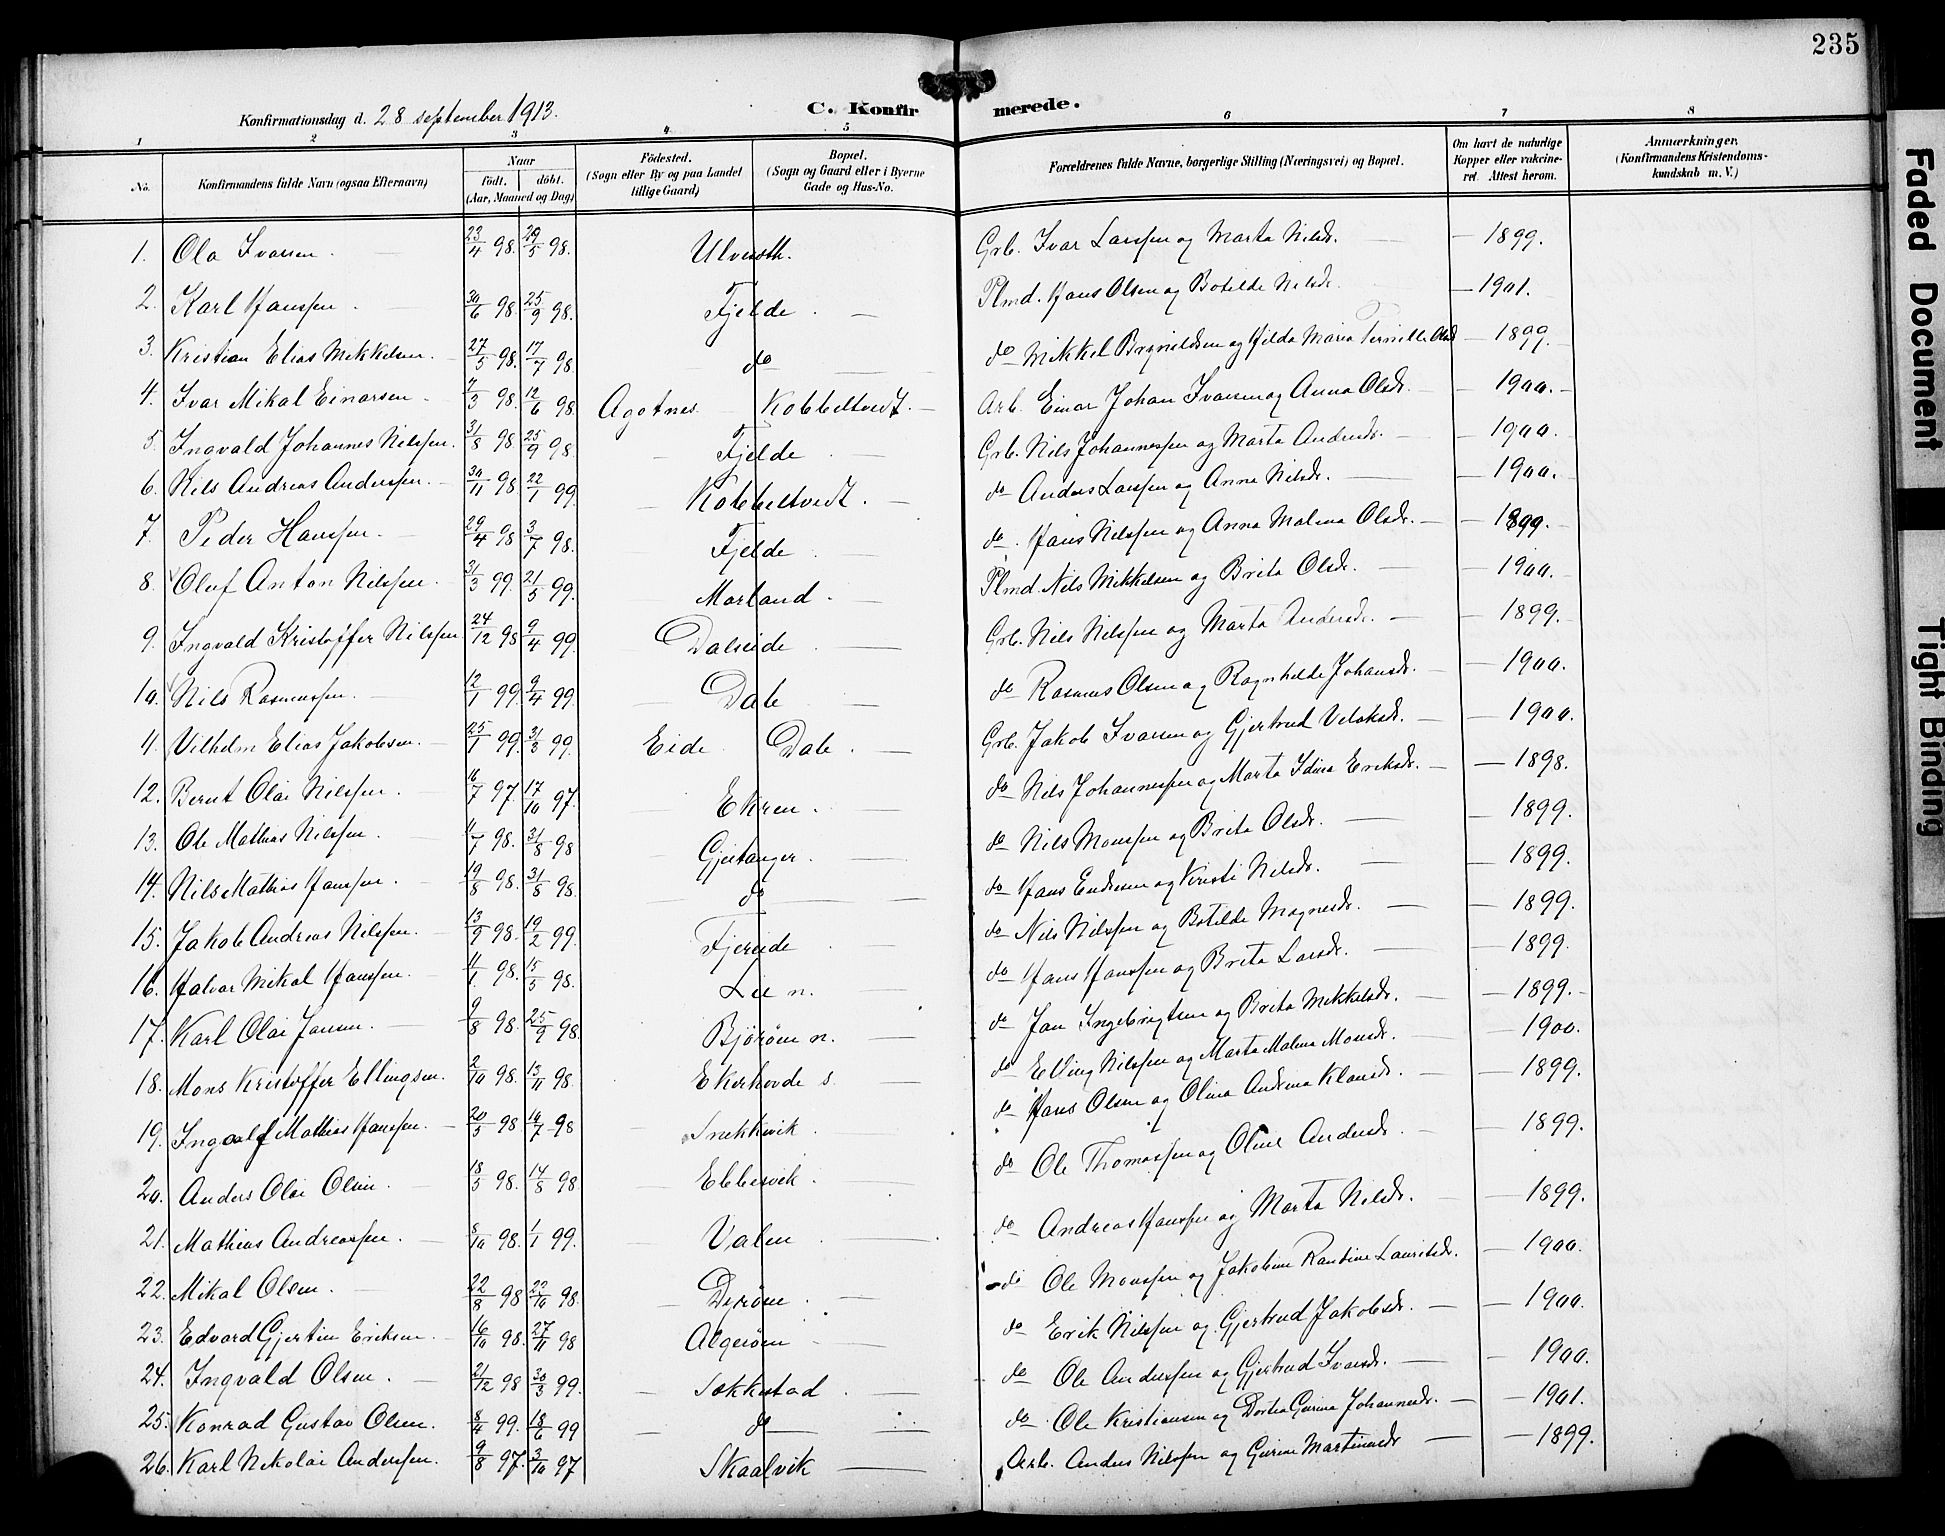 235
C. Konfirmerede.
Konfirmationsdag d. 28 september 1913.
1 2 3 4 5 6 7 8
No. Konfirmandens fulde Navn (ogsaa Efternavn) Naar født. døbt. (Aar, Maaned og Dag) Fødested. (Sogn eller By og paa Landet tillige Gaard) Bopæl. (Sogn og Gaard eller i Byerne Gade og Hus-No. Forældrenes fulde Navne, borgerlige Stilling (Næringsvei) og Bopæl. Om havt de naturlige Kopper eller vakcineret. Attest herom. Anmærkninger. (Konfirmandens Kristendomskundskab m. V.)
1. Ola Ivarsen. 23/4 98. 29/5 98. Ulvesth. Grb. Ivar Larssen og Marta Nilsdr. 1899.
2. Karl Hanssen. 30/6 98. 25/9 98. Fjelde. Plmd. Hans Olsen og Botilde Nilsdr. 1901.
3. Kristian Elias Mikkelsen. 27/5 98. 17/7 98. do do Mikkel Brynildsen og Hilda Maria Pernille Olsd 1899.
4. Ivar Mikal Einarsen. 7/3 98. 12/6 98. Agotnes. Kobbeltvedt. Arb. Einar Johan Ivarsen og Anna Olsdr. 1900.
5. Ingvald Johannes Nilssen. 31/8 98. 25/9 98. Fjelde Grb. Nils Johannessen og Marta Andersdr. 1900.
6. Nils Andreas Anderssen. 30/11 98. 22/1 99. Kobbeltvedt. do Anders Larssen og Anna Nilsdr. 1900.
7. Peder Hanssen. 29/4 98 3/7 98. Fjelde do. Hans Nilssen og Anna Malena Olsdr. 1899.
8. Oluf Anton Nilssen. 31/3 99. 21/5 99. Morland. Plmd. Nils Mikkelsen og Brita Olsdr. 1900.
9. Ingvald Kristoffer Nilssen 24/12 98 9/4 99. Dalseide Grb. Nils Nilssen og Marta Andersdr. 1899.
10. Nils Rasmussen. 12/1 99. 9/4 99. Dale do Rasmus Olsen og Ragnhilde Johansdr. 1900.
11. Vilhelm Elias Jakobsen. 25/1 99. 31/3 99. Eide. Dale. Grb. Jakob Ivarsen og Gjertrud Veloksdr. 1900.
12. Bernt Olai Nilssen. 16/7 97. 17/10 97. Ekren. do Nils Johannessen og Marta Idina Eriksdr. 1898.
13. Ole Mathias Nilssen. 11/7 98. 31/8 98 Gjertanger. do Nils Monssen og Brita Olsdr. 1899.
14. Nils Mathias Hanssen. 19/8 98. 31/8 98. do do Hans Endresen og Kristi Nilsdr. 1899.
15. Jakob Andreas Nilssen. 13/9 98. 19/2 99. Fjereide do Nils Nilssen og Botilde Magnesdr. 1899.
16. Halvar Mikal Hanssen. 11/1 98. 15/5 98. Lie n. do Hans Hanssen og Brita Larsdr. 1899.
17. Karl Olai Jansen. 9/8 98. 25/9 98. Bjørøen n. do Jan Ingebrigtsen og Brita Mikkelsdr. 1899.
18. Mons Kristoffer Ellingsen. 2/10 98. 13/11 98. Ekerhovde s. do Elling Nilssen og Marta Malena Monsdr. 1900.
19. Ingvalf Mathias Hanssen. 20/5 98 10/7 98 Snekkevik. do Hans Olsen og Olina Andrina Klausdr. 1899.
20. Anders Olai Olsen. 18/5 98. 14/8 98 Ebbesvik. do Ole Thomassen og Oline Andersdr. 1899.
21. Mathias Andreassen. 8/10 98. 1/1 99. Valen do Andreas Hanssen og Marta Nilsdr. 1899.
22. Mikal Olsen. 22/8 98 22/10 98. Dyrøen. do Ole Monssen og Jakobine Rantine Lauritsdr. 1900.
23. Edvard Gjertin Eriksen. 16/10 98. 27/11 98 Algerøen do Erik Nilssen og Gjertrud Jakobsdr. 1900.
24. Ingvald Olsen. 21/12 98 30/3 99. Sekkestad. do Ole Anderssen og Gjertrud Ivarsdr. 1900.
25. Konrad Gustav Olsen. 8/4 99. 18/6 99 do do Ole Kristiansen og Dortea Gurina Johannesdr. 1901.
26. Karl Nikolai Anderssen. 9/8 97. 3/10 97 Skaalvik Arb. Anders Nilssen og Gurine Martinusdr 1899.
Faded Document
Tight Binding